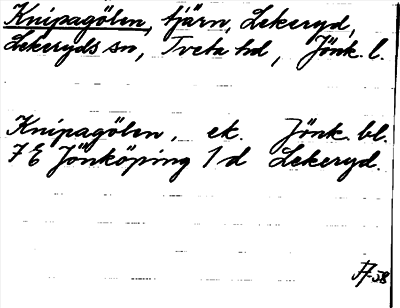 Knipagölen, tjärn, Lekeryd,
Lekeryds sn, Tveta hd, Jönk. l.
Knipagölen, ek. Jönk. bl.
7 E Jönköping 1 d Lekeryd.
-58